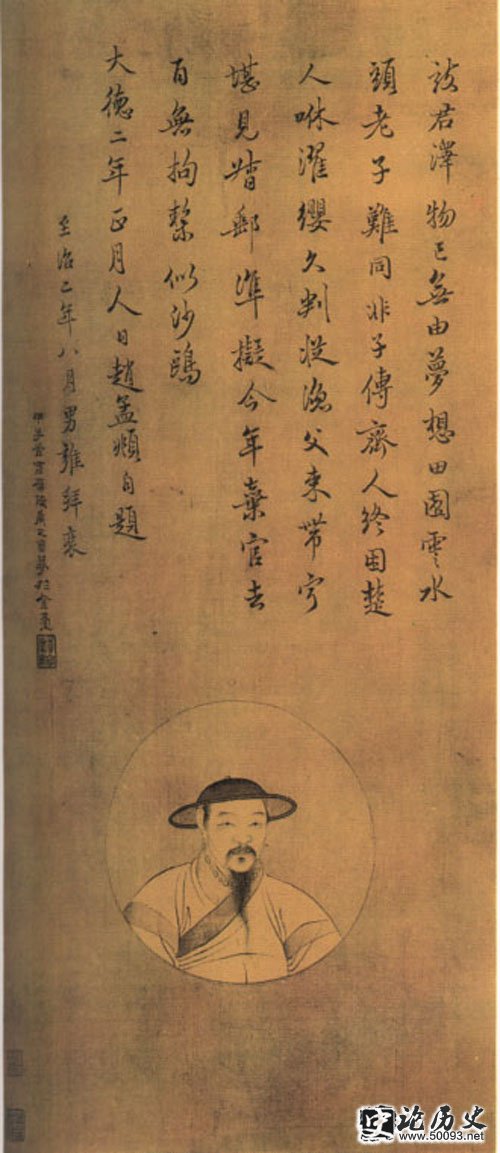 致君澤物已無由夢想田園雲水
頭老子難同非子傳齊人終困楚
人咻濯纓久判從漁父束帶寧
堪見督郵準擬今年棄官去
百無拘繫似沙鷗
大德二年正月人日趙孟頫自題
至治二年八月男雍拜裝
论历史
www.50093.net